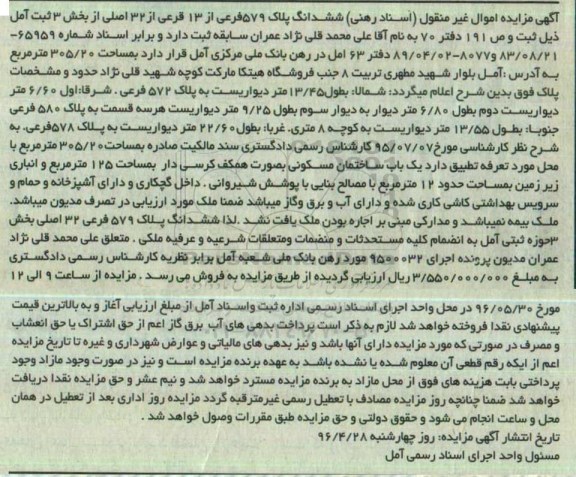 آگهی مزایده اموال غیر منقول (اسناد رهنی) ششدانگ پلاک ۵۷۹فرعی از ۱۳ فرعی از۳۲ اصلی از بخش ۳ ثبت آمل
ذیل ثبت و ص ۱۹۱ دفتر ۷۰ به نام آقا علی محمد قلی نژاد عمران سابقه ثبت دارد و برابر اسناد شماره ۶۵۹۵۹-
۸۳/۰۸/۲۱ و۸۰۷۷-۸۹/۰۴/۰۲ دفتر ۶۳ امل در رهن بانک ملی مرکزی آمل قرار دارد بمساحت ۳۰۵/۲۰ مترمربع
به آدرس :آمل بلوار شهید مطهری تربیت ۸ جنب فروشگاه هیتکا مارکت کوچه شهید قلی نژاد حدود و مشخصات
پلاک فوق بدین شرح اعلام میگردد: شمالا: بطول۱۳/۴۵متر دیواریست به پلاک ۵۷۲ فرعی . شرقا:اول ۶/۶۰ متر
دیواریست دوم بطول ۶/۸۰ متر دیوار به دیوار سوم بطول ۹/۲۵ متر دیواریست هرسه قسمت به پلاک ۵۸۰ فرعی
جنوبا: بطول ۱۳/۵۵ متر دیواریست به کوچه ۸ متری. غربا: بطول۲۲/۶۰ متر دیواریست به پلاک ۵۷۸فرعی. به
شرح نظر کارشناسی مورخ۹۵/۰۷/۰۷ کارشناس رسمی دادگستری سند مالکیت صادره بمساحت۳۰۵/۲۰ مترمربع با
محل مورد تعرفه تطبیق دارد یک باب ساختمان مسکونی بصورت همکف کرسی دار بمساحت ۱۲۵ مترمربع و انباری
زیر زمین بمساحت حدود ۱۲ مترمربع با مصالح بنایی با پوشش شیروانی . داخل گچکاری و دارای آشپزخانه و حمام و
سرویس بهداشتی کاشی کاری شده و دارای آب و برق وگاز میباشد ضمنا ملک مورد ارزیابی در تصرف مدیون میباشد.
ملک بیمه نمیباشد و مدارکی مبنی بر اجاره بودن ملک یافت نشد .لذا ششدانگ پلاک ۵۷۹ فرعی ۳۲ اصلی بخش
۳حوزه ثبتی آمل به انضمام کلیه مستحدثات و منضمات ومتعلقات شرعیه و عرفیه ملکی . متعلق علی محمد قلی نژاد
عمران مدیون پرونده اجرای ۹۵۰۰۰۳۲ مورد رهن بانک ملی شعبه آمل برابر نظریه کارشناس رسمی دادگستری
به مبلغ ۳/۵۵۰/۰۰۰/۰۰۰ ریال ارزیابی گردیده از طریق مزایده به فروش می رسد . مزایده از ساعت ۹ الی ۱۲
مورخ ۹۶/۰۵/۳۰ در محل واحد اجرای اسناد رسمی اداره ثبت واسناد آمل از مبلغ ارزیابی آغاز و به بالاترین قیمت
پیشنهادی نقدا فروخته خواهد شد لازم به ذکر است پرداخت بدهی های آب برق گاز اعم از حق اشتراک یا حق انعشاب
و مصرف در صورتی که مورد مزایده دارای آنها باشد و نیز بدهی های مالیاتی و عوارض شهرداری و غیره تا تاریخ مزایده
اعم از ایکه رقم قطعی آن معلوم شده یا نشده باشد به عهده برنده مزایده است و نیز در صورت وجود مازاد وجود
پرداختی بابت هزینه های فوق از محل مازاد به برنده مزایده مسترد خواهد شد و نیم عشر و حق مزایده نقدا دریافت
خواهد شد ضمنا چنانچه روز مزایده مصادف با تعطیل رسمی غیرمترقبه گردد مزایده روز اداری بعد از تعطیل در همان
محل و ساعت انجام می شود و حقوق دولتی و حق مزایده طبق مقررات وصول خواهد شد .
تاریخ انتشار آگهی مزایده: روز چهارشنبه ۹۶/۴/۲۸
مسئول واحد اجرای اسناد رسمی آمل